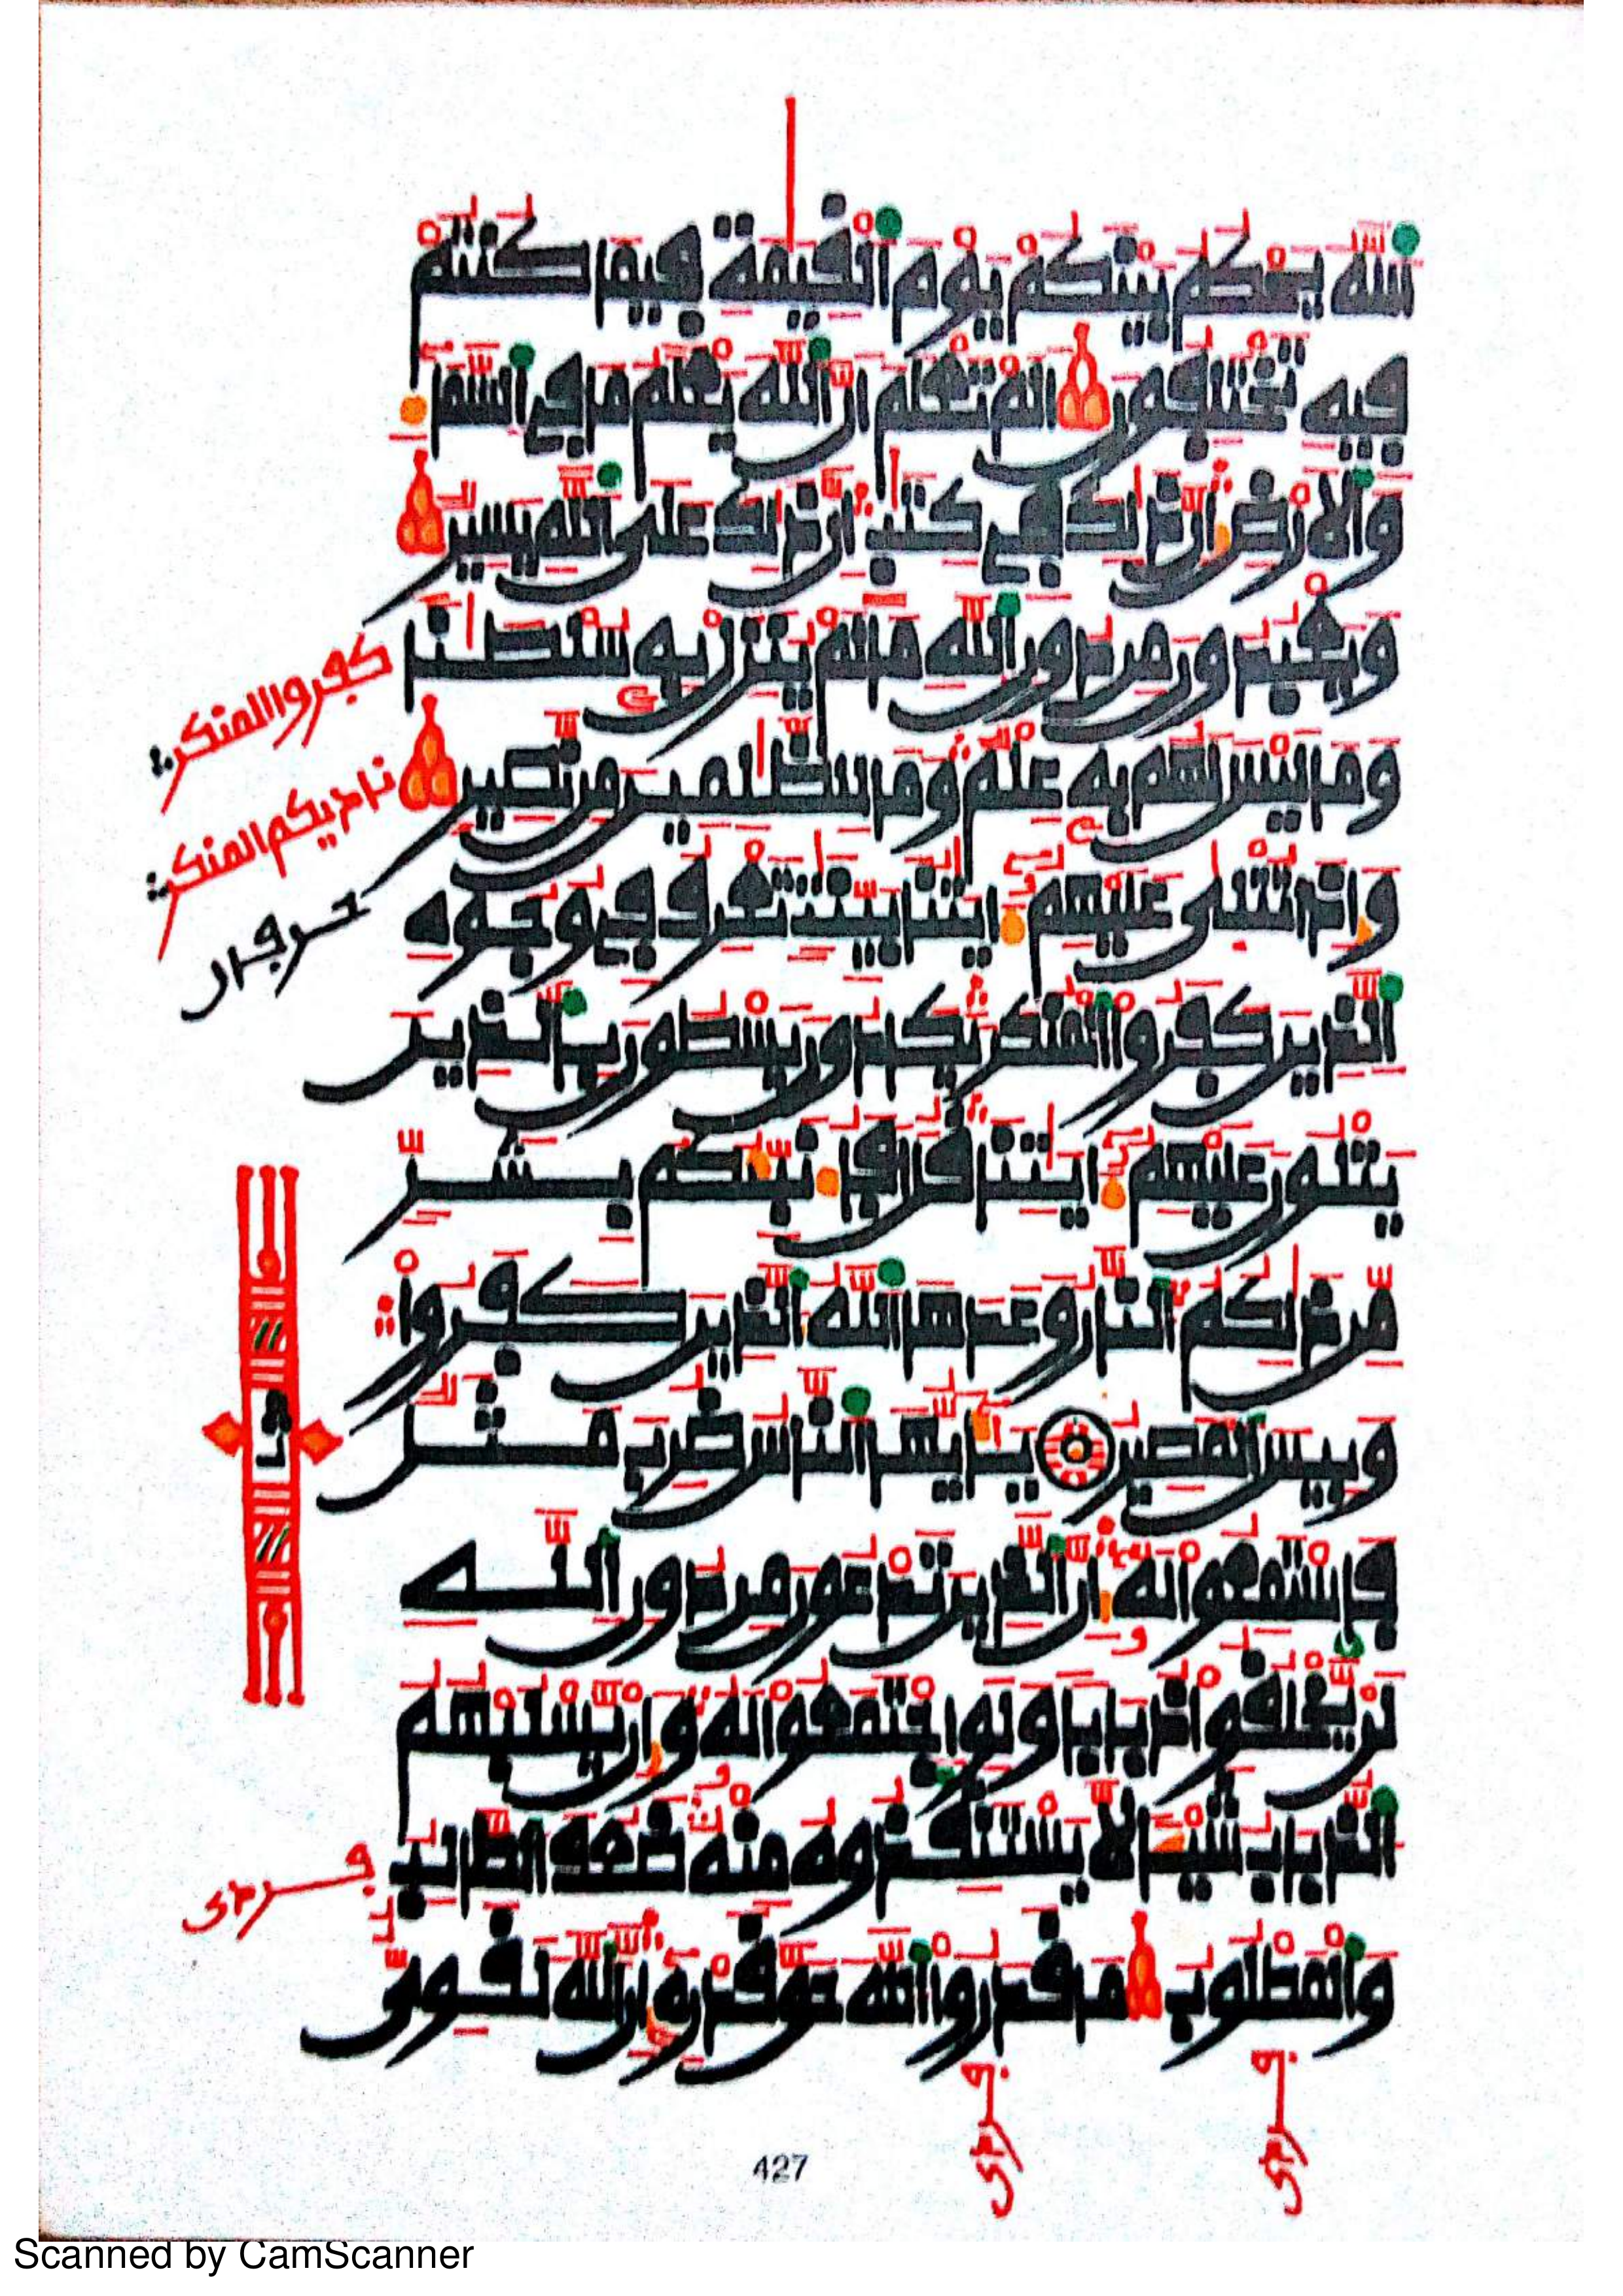 ٱللَّهُ يَحْكُمُ بَيْنَكُمْ يَوْمَ ٱلْقِيَٰمَةِ فِيمَا كُنتُمْ
فِيهِ تَخْتَلِفُونَ أَلَمْ تَعْلَمْ أَنَّ ٱللَّهَ يَعْلَمُ مَا فِي ٱلسَّمَآءِ
وَٱلْأَرْضِ إِنَّ ذَٰلِكَ فِي كِتَٰبٍ إِنَّ ذَٰلِكَ عَلَى ٱللَّهِ يَسِيرٌ
وَيَعْبُدُونَ مِن دُونِ ٱللَّهِ مَا لَمْ يُنَزِّلْ بِهِۦ سُلْطَٰنًا
وَمَا لَيْسَ لَهُم بِهِۦ عِلْمٌ وَمَا لِلظَّٰلِمِينَ مِن نَّصِيرٍ
وَإِذَا تُتْلَىٰ عَلَيْهِمْ ءَايَٰتُنَا بَيِّنَٰتٍ تَعْرِفُ فِي وُجُوهِ
ٱلَّذِينَ كَفَرُوا ٱلْمُنكَرَ يَكَادُونَ يَسْطُونَ بِٱلَّذِينَ
يَتْلُونَ عَلَيْهِمْ ءَايَٰتِنَا قُلْ أَفَأُنَبِّئُكُم بِشَرٍّ
مِّن ذَٰلِكُمُ ٱلنَّارُ وَعَدَهَا ٱللَّهُ ٱلَّذِينَ كَفَرُوا
وَبِيسَ ٱلْمَصِيرُ يَٰٓأَيُّهَا ٱلنَّاسُ ضُرِبَ مَثَلٌ
فَٱسْتَمِعُوا لَهُۥ إِنَّ ٱلَّذِينَ تَدْعُونَ مِن دُونِ ٱللَّهِ
لَن يَخْلُقُوا ذُبَابًا وَلَوِ ٱجْتَمَعُوا لَهُۥ وَإِن يَسْلُبْهُمُ
ٱلذُّبَابُ شَيْـًٔا لَّا يَسْتَنقِذُوهُ مِنْهُ ضَعُفَ ٱلطَّالِبُ
وَٱلْمَطْلُوبُ مَا قَدَرُوا ٱللَّهَ حَقَّ قَدْرِهِۦٓ إِنَّ ٱللَّهَ لَقَوِيٌّ
كفروا المنكر
ناديكم المنكر
ثمن
427
Scanned by CamScanner